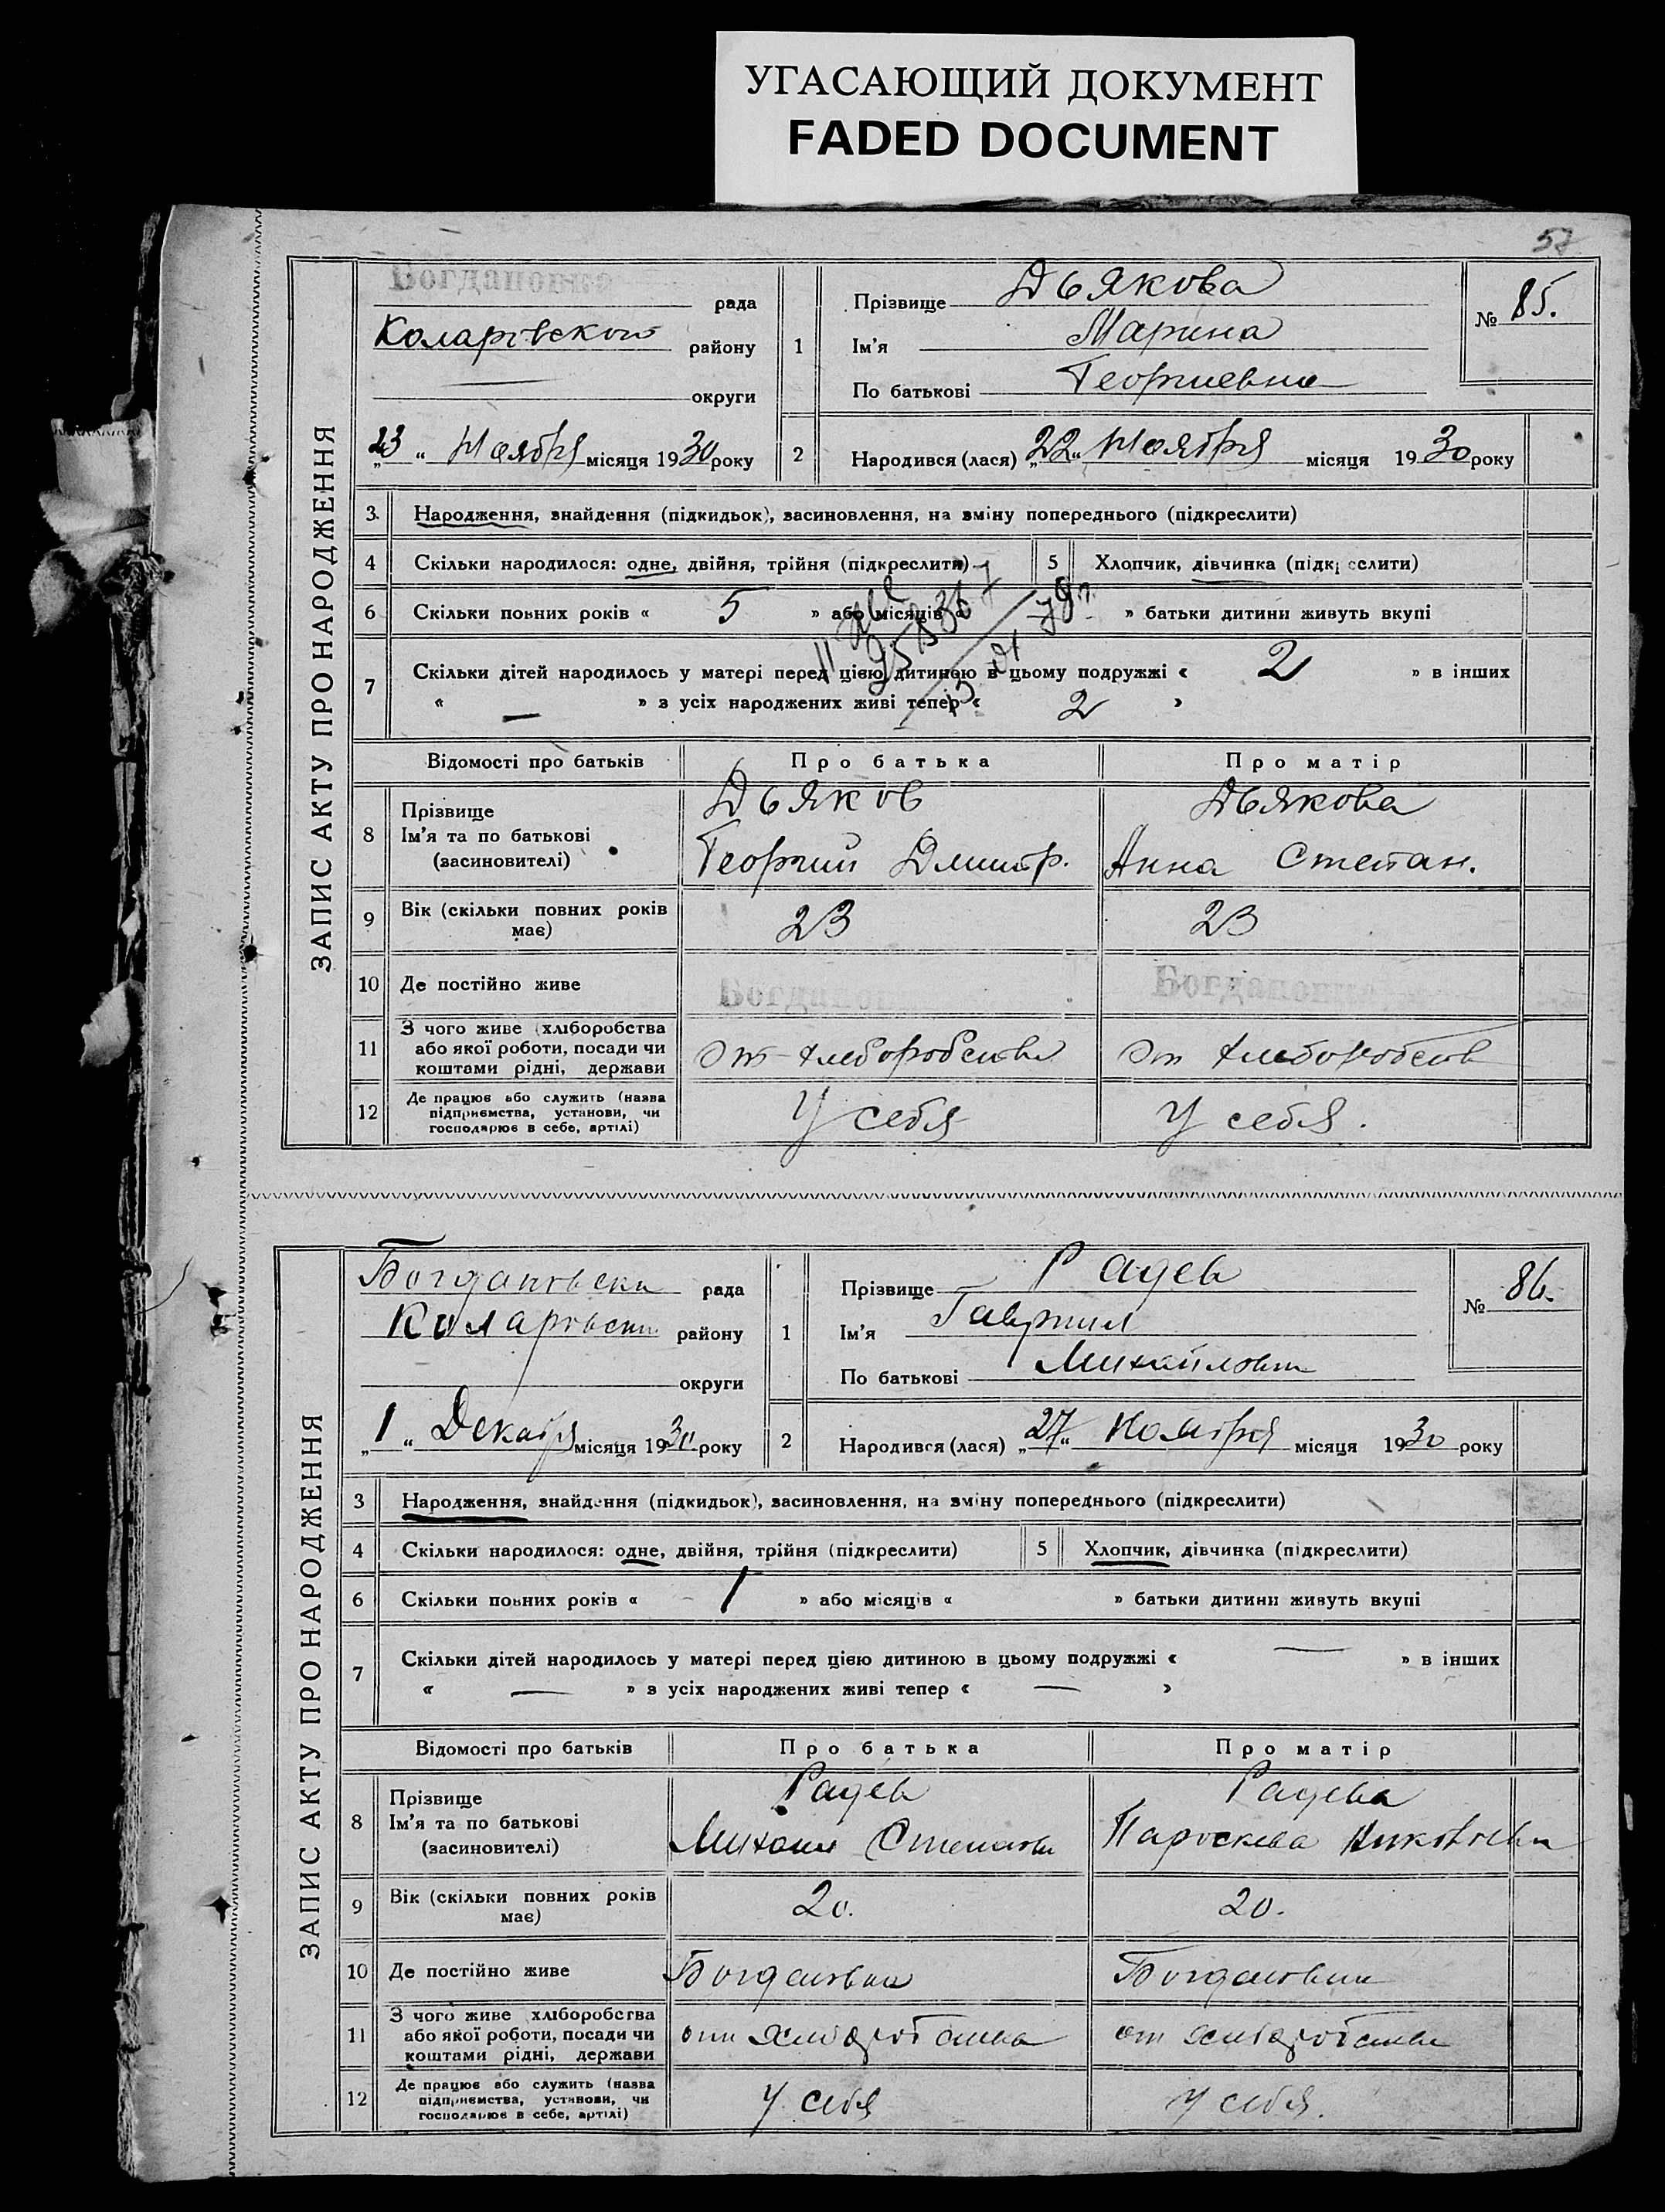 УГАСАЮЩИЙ ДОКУМЕНТ
FADED DOCUMENT
57
ЗАПИС АКТУ ПРО НАРОДЖЕННЯ
Богдановка рада
Коларовской району
округи
„23“ Ноября місяця 1930 року
1 Прізвище Дьякова
Ім'я Марина
По батькові Георгиевна
№ 85.
2 Народився (лася) „22“ Ноября місяця 1930 року
3. Народження, знайдення (підкидьок), засиновлення, на зміну попереднього (підкреслити)
4 Скільки народилося: одне, двійня, трійня (підкреслити)
5 Хлопчик, дівчинка (підкреслити)
6 Скільки повних років « 5 » або місяців « » батьки дитини живуть вкупі
7 Скільки дітей народилось у матері перед цією дитиною в цьому подружжі « 2 » в інших
« — » з усіх народжених живі тепер « 2 »
Відомості про батьків Про батька Про матір
8 Прізвище Дьяков Дьякова
Ім'я та по батькові Георгий Дмитр. Анна Степан.
(засиновителі)
9 Вік (скільки повних років має) 23 23
10 Де постійно живе Богдановка Богдановка
11 З чого живе (хліборобства
або якої роботи, посади чи От хлеборобства От хлеборобств
коштами рідні, держави
12 Де працює або служить (назва
підприємства, установи, чи У себя У себя.
господарює в себе, артілі)
ЗАПИС АКТУ ПРО НАРОДЖЕННЯ
Богдановски рада
Коларовски району
округи
„1“ Декабря місяця 1930 року
1 Прізвище Радев
Ім'я Гавриил
По батькові Михайлович
№ 86.
2 Народився (лася) „27“ Ноября місяця 1930 року
3 Народження, знайдення (підкидьок), засиновлення, на зміну попереднього (підкреслити)
4 Скільки народилося: одне, двійня, трійня (підкреслити)
5 Хлопчик, дівчинка (підкреслити)
6 Скільки повних років « 1 » або місяців « » батьки дитини живуть вкупі
7 Скільки дітей народилось у матері перед цією дитиною в цьому подружжі « — » в інших
« — » з усіх народжених живі тепер « — »
Відомості про батьків Про батька Про матір
8 Прізвище Радев Радева
Ім'я та по батькові Михаил Степанови Параскева
(засиновителі)
9 Вік (скільки повних років має) 20. 20.
10 Де постійно живе Богдановка Богдановка
11 З чого живе хліборобства
або якої роботи, посади чи от хлеборобства от хлеборобства
коштами рідні, держави
12 Де працює або служить (назва
підприємства, установи, чи У себя У себя.
господарює в себе, артілі)